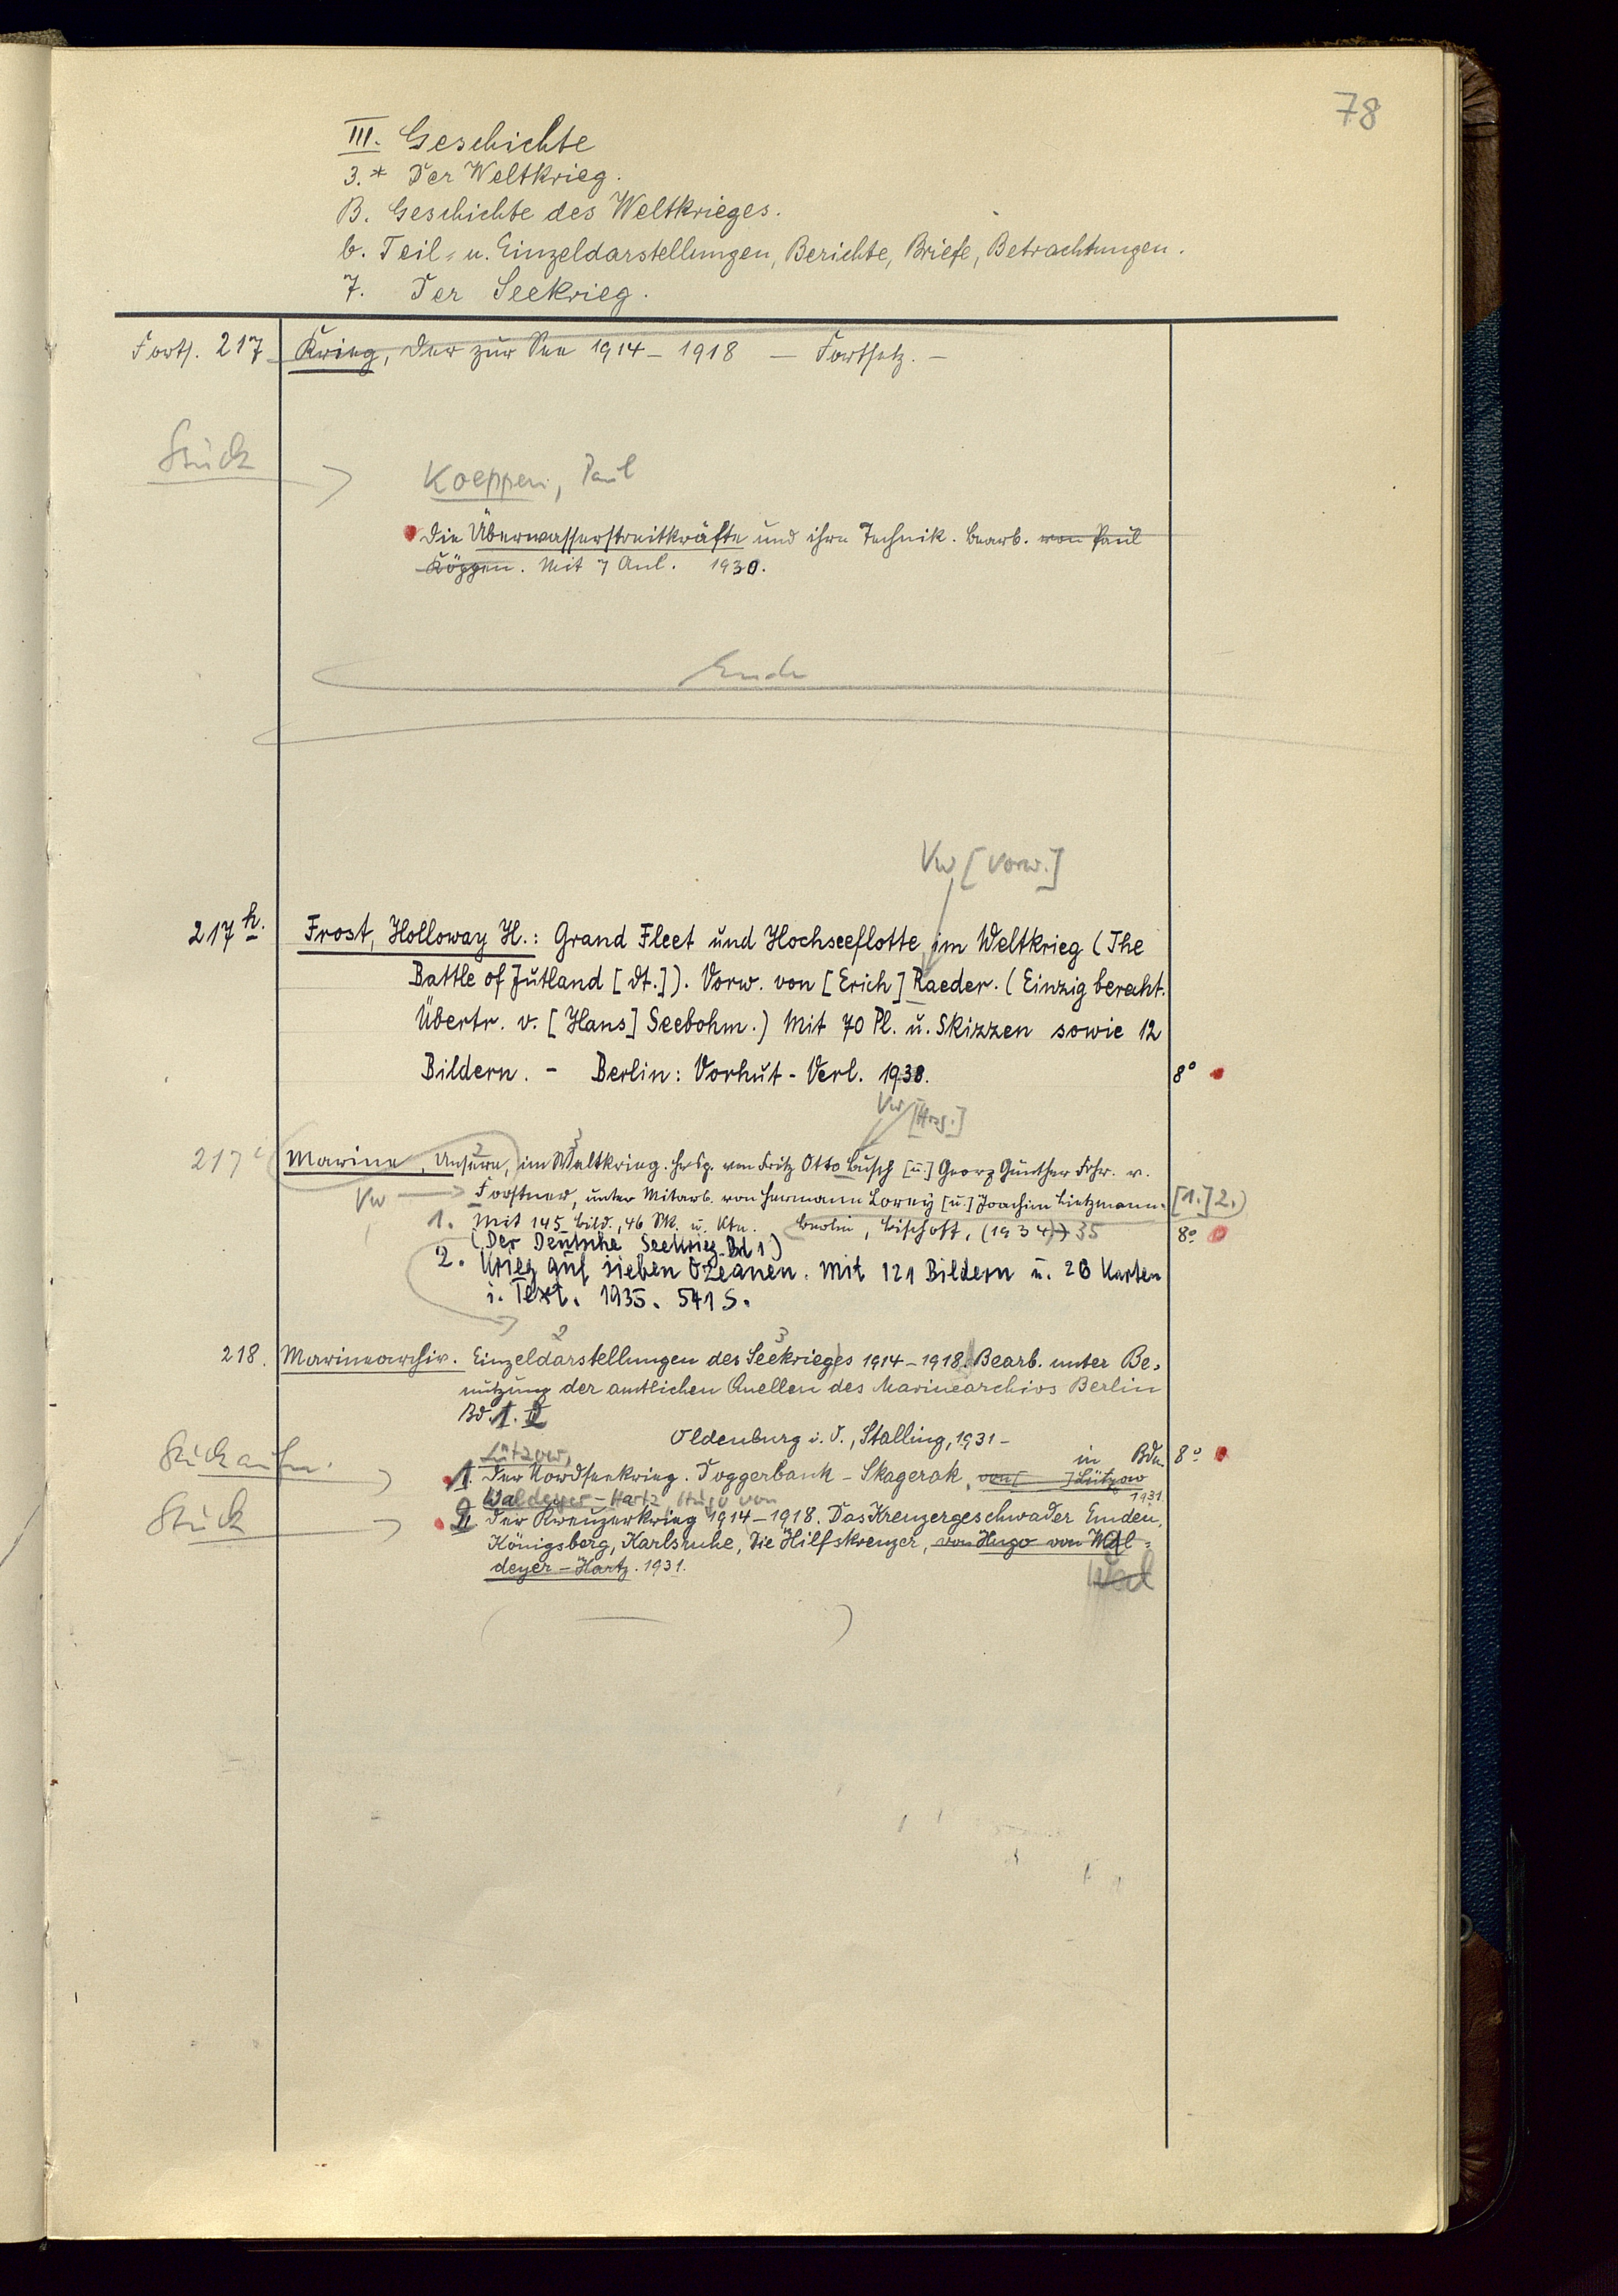 78
III. Geschichte
3.* Der Weltkrieg.
B. Geschichte des Weltkrieges.
b. Teil- u. Einzeldarstellungen, Berichte, Briefe, Betrachtungen.
7. Der Seekrieg.
Forts. 217 Krieg, Der zur See 1914-1918 — Fortsetz. —
Stück
Koeppen, Paul
Die Überwasserstreitkräfte und ihre Technik. Bearb. von Paul
Köppen. Mit 7 Anl. 1930.
Ende
Vw [Vorw.]
217 h. Frost, Holloway H.: Grand Fleet und Hochseeflotte im Weltkrieg (The
Battle of Jutland [dt.]). Vorw. von [Erich] Raeder. (Einzig berecht.
Übertr. v. [Hans] Seebohm.) Mit 70 Pl. u. Skizzen sowie 12
Bildern. - Berlin: Vorhut-Verl. 1938. 8°
Vw [Hrsg.]
217 i Marine, Unsere, im Weltkrieg. Hrsg. von Fritz Otto Busch [u.] Georg Günther Frhr. v.
Vw Forstner, unter Mitarb. von Hermann Lorey [u.] Joachim Lietzmann. [1.] 2.)
1. Mit 145 Bild., 46 Sk. u. Ktn. Berlin, Bischoff, (1934) 35 8°
(Der Deutsche Seekrieg. Bd 1)
2. Krieg auf sieben Ozeanen. Mit 121 Bildern u. 26 Karten
i. Text. 1935. 541 S.
2 3
218. Marinearchiv. Einzeldarstellungen des Seekrieges 1914-1918. Bearb. unter Be-
nutzung der amtlichen Quellen des Marinearchivs Berlin
Bd. 1. 2
Oldenburg i. O., Stalling, 1931-
in Bdn. 8°
Stückaufn. Lützow,
1. Der Nordseekrieg. Doggerbank - Skagerak, von [ ] Lützow
1931
Waldeyer-Hartz, Hugo von
Stück 2. Der Kreuzerkrieg 1914-1918. Das Kreuzergeschwader Emden,
Königsberg, Karlsruhe, Die Hilfskreuzer, von Hugo von Wal-
deyer-Hartz. 1931.
Wal